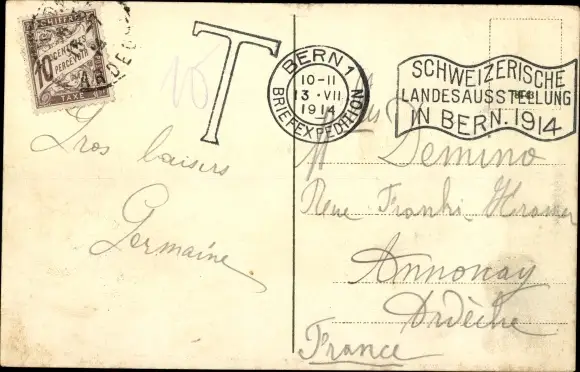 CHIFFRE
10 CENTIMES
A PERCEVOIR
TAXE
T
10
BERN 1
10-11
13·VII
1914
BRIEFEXPEDITION
SCHWEIZERISCHE
LANDESAUSSTELLUNG
IN BERN. 1914
Gros baisers
Germaine
Demino
Rue Franki Kramer
Annonay
Ardèche
France